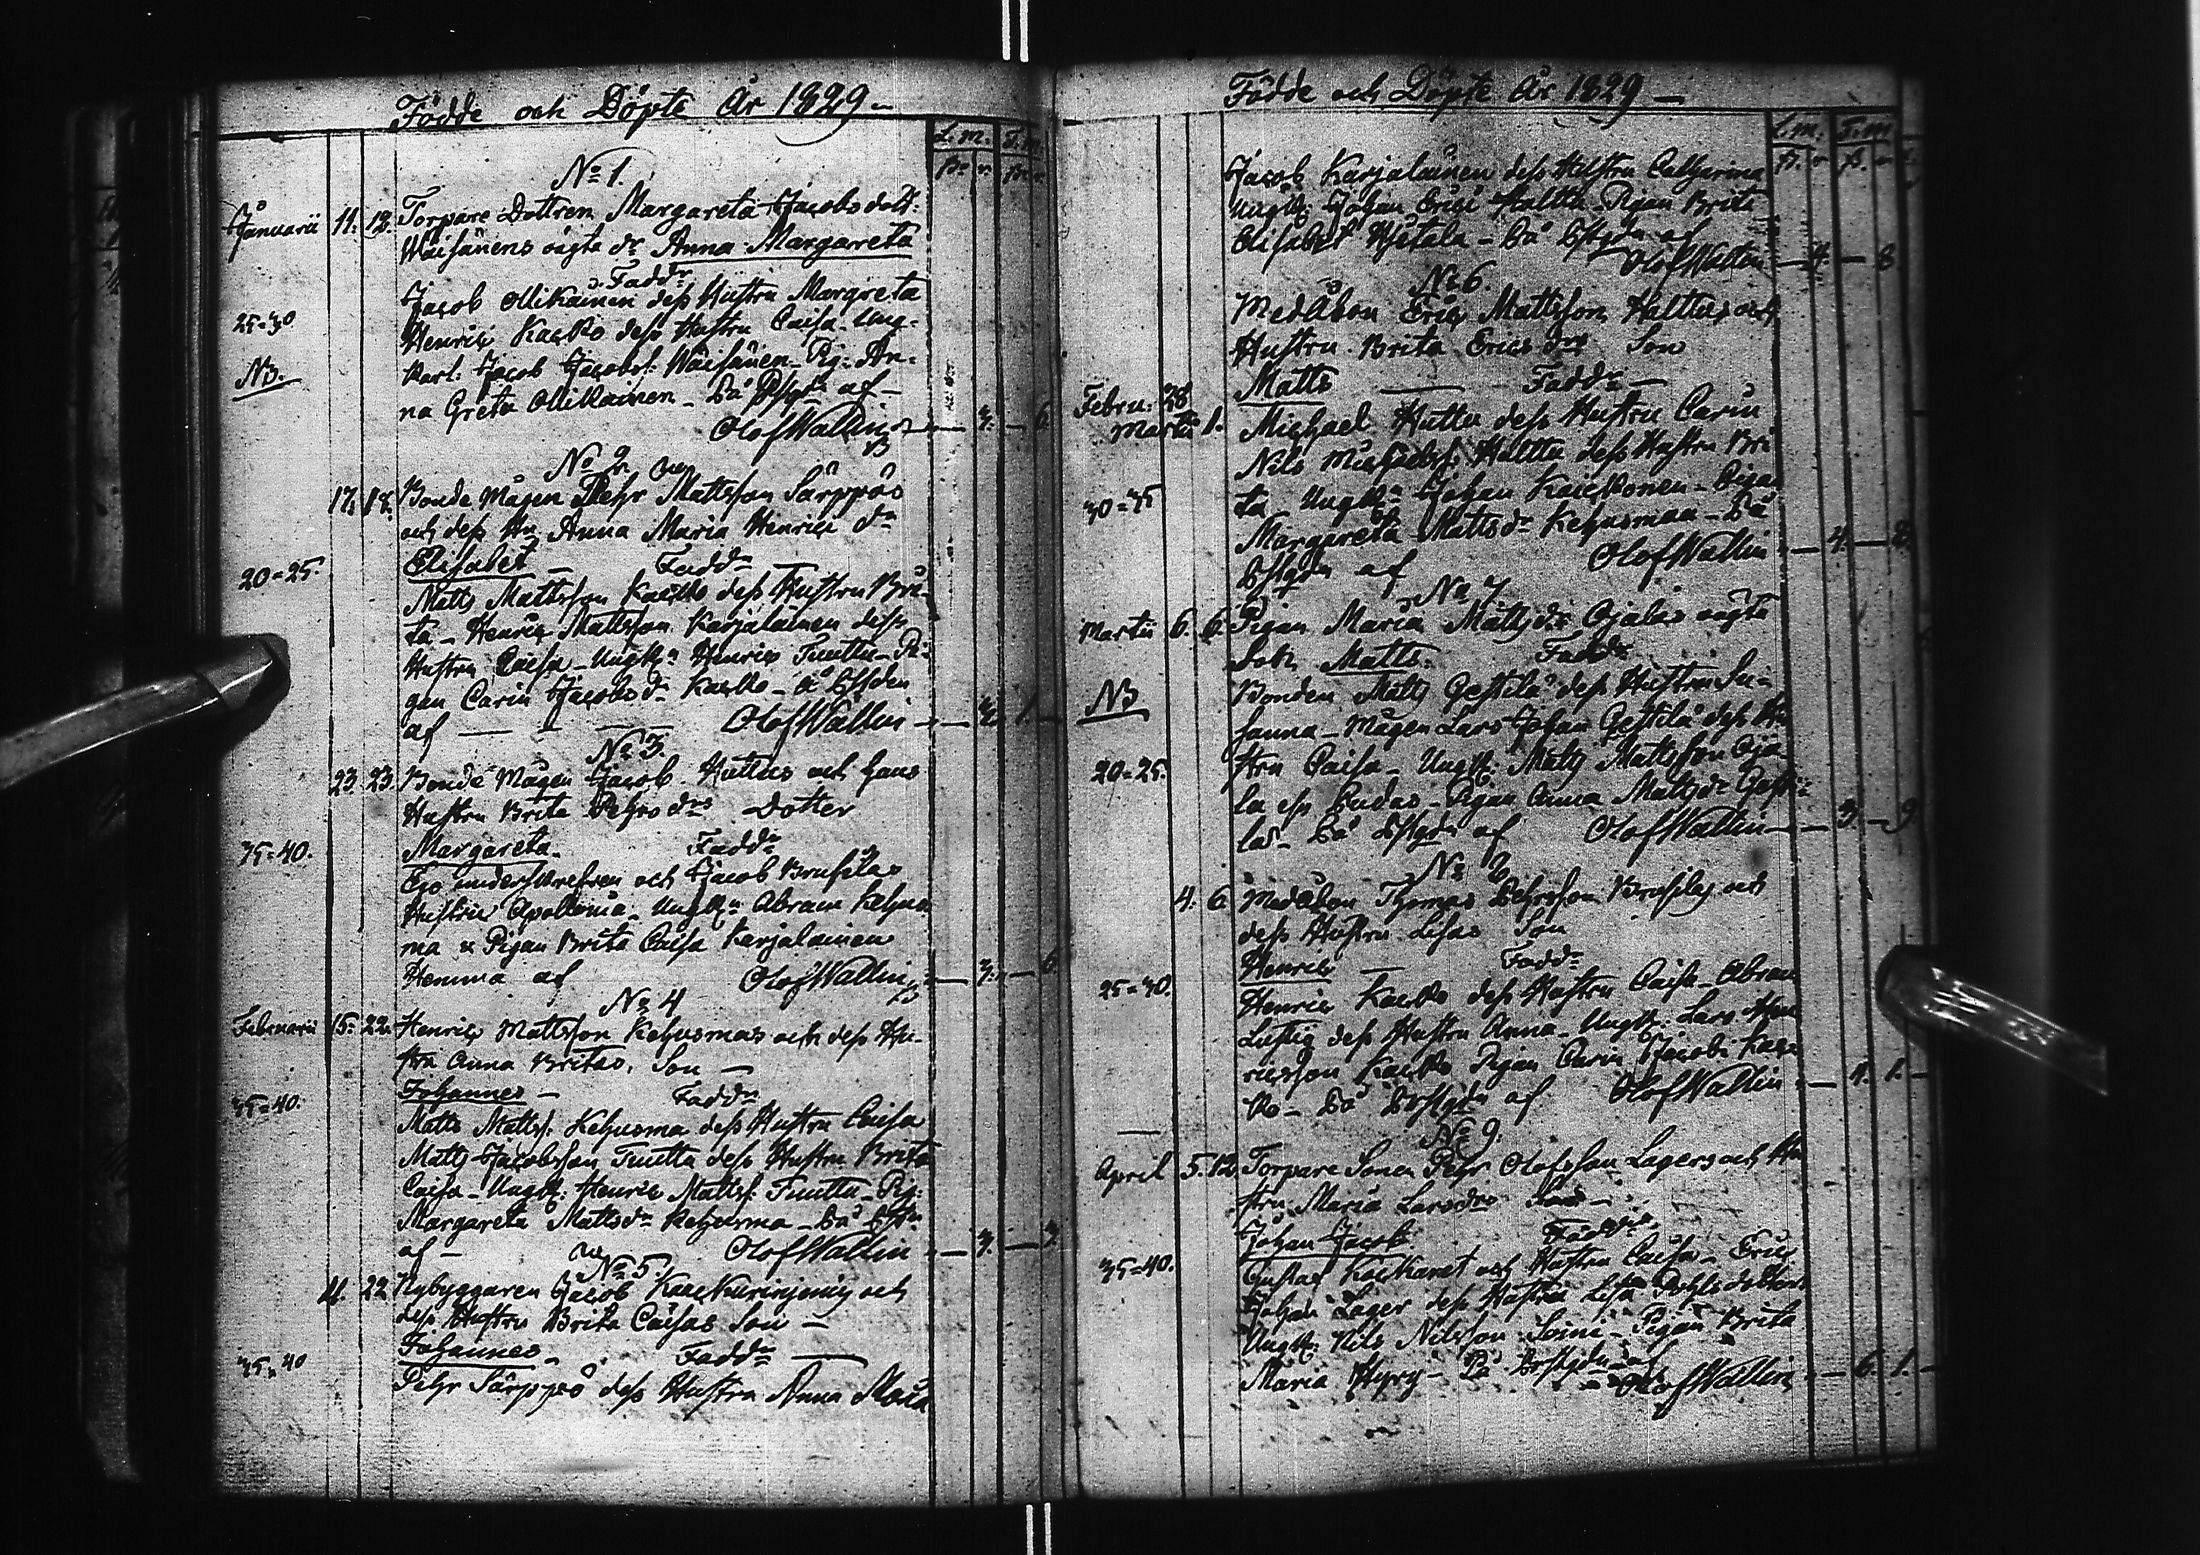 Födde och Döpte År 1829 –
L. m. T. m.
No 1.
Januarii 11. 12. Torpare Dottren Margareta Jacobs dott:
Wäisänens oägta dr Anna Margareta
Faddr
Jacob Ollikainen dess Hustru Margreta
25=30 Henric Kaikko dess Hustru Caisa. Ung-
karl: Jacob Jacobss: Wäisänen. Pig: An-
NB. na Greta Ollikainen –
Olof Wallin – 3. – 6.
No 2
17. 18. Bonde Mågen Pehr Mattsson Särppös
och dess Hu Anna Maria Henrics dr
Elisabet – Faddr –
20=25. Matts Mattsson Kaikko dess Hustru Bri-
ta – Henric Mattsson Karjalainen dess
Hustru Caisa – Ungk: Henric Tuuttu – Pi-
gan Carin Jacobs dr Kaikko –
af — — — Olof Wallin
No 3
23. 23. Bonde Mågen Jacob Huttus och hans
Hustru Brita Pehrs drs Dotter
35=40. Margareta. Faddr
Ego underskrefven och Jacob Brusilas
Hustru Apollonia – Ungk: Abram Kehus
ma & Pigan Brita Caisa Karjalainen
Hemma af Olof Wallin – 3. – 6.
No 4
Februarii 15. 22. Henric Mattsson Kehusmas och dess Hu-
stru Anna Britas. Son —
35=40. Johannes – Faddr
Matts Mattss. Kehusma dess Hustru Caisa
Matts Jacobsson Tuuttu dess Hustru Brita
Caisa – Ungk: Henric Mattss: Tuuttu – Pig:
Margareta Mattsdr Kehusma –
af – Olof Wallin – 3. – 3
No 5
4. 22. Nybyggaren Jacob och
dess Hustru Brita Caisas Son –
35=40 Johannes – Faddr —
Pehr Särppö dess Hustru Anna Maria
Födde och Döpte År 1829 —
L. m. T. m
Jacob Karjalainen dess Hustru Catharina
Ungk: Johan Brita
Elisabet
Olof Wallin – 4. – 8.
No 6.
Medåbon Eric Mattsson Huttus och
Hustru Brita Erics drs Son
Matts — Faddr –
Febru: 28 Martii 1. Michael Huttu dess Hustru Carin
Nils Michaelss. Huttu dess Hustru Bri
30=35 ta – Ungk: Johan – Pigan
Margareta Mattsdr Kehusmaa – På
af Olof Wallin – 4. – 8.
No 7
Martii 6. 6. Pigan Maria Mattsdr Ojalas oägta
Son Matts. Faddr
NB Bonden Matts dess Hustru Su-
sanna – Mågen Lars Johan dess Hu
20=25. stru Caisa – Ungk: Matts Mattsson Oja
la – Pigan Anna Mattsdr
af Olof Wallin – 3. – 9
No 8
4. 6. Medåbon Thomas Pehrsson Brusilas och
dess Hustru Lisas Son
Henric — Faddr
25=30. Henric Kaikko dess Hustru Caisa – Abram
Lustig dess Hustru Anna – Ungk: Lars Hen
ricsson Kaikko Pigan Carin Jacobs Kaik
ko – På af Olof Wallin
No 9.
April 5. 12. Torpare Sonen Pehr Olofsson Lagers och Hu
stru Maria Larsdrs Son –
Johan Jacob Faddr
35=40. Gustaf och Hustru Caisa – Eric
Johan Lager dess Hustru Lisa Pehrsdotter
Ungk: Nils Nilsson Soini – Pigan Brita
Maria Hyry – På
Olof Wallin